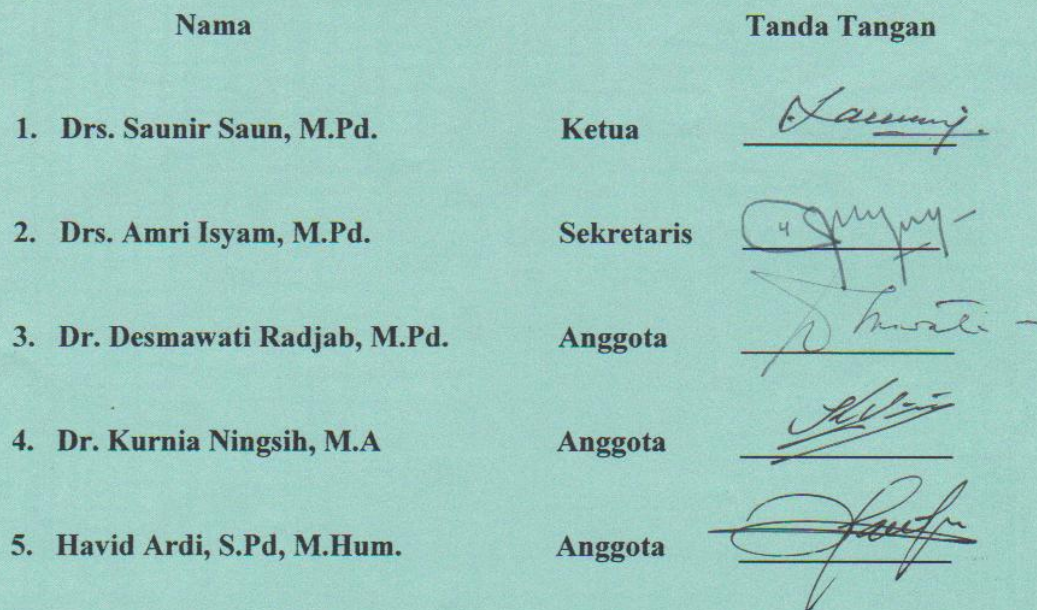 Nama Tanda Tangan
1. Drs. Saunir Saun, M.Pd. Ketua
2. Drs. Amri Isyam, M.Pd. Sekretaris
3. Dr. Desmawati Radjab, M.Pd. Anggota
4. Dr. Kurnia Ningsih, M.A Anggota
5. Havid Ardi, S.Pd, M.Hum. Anggota